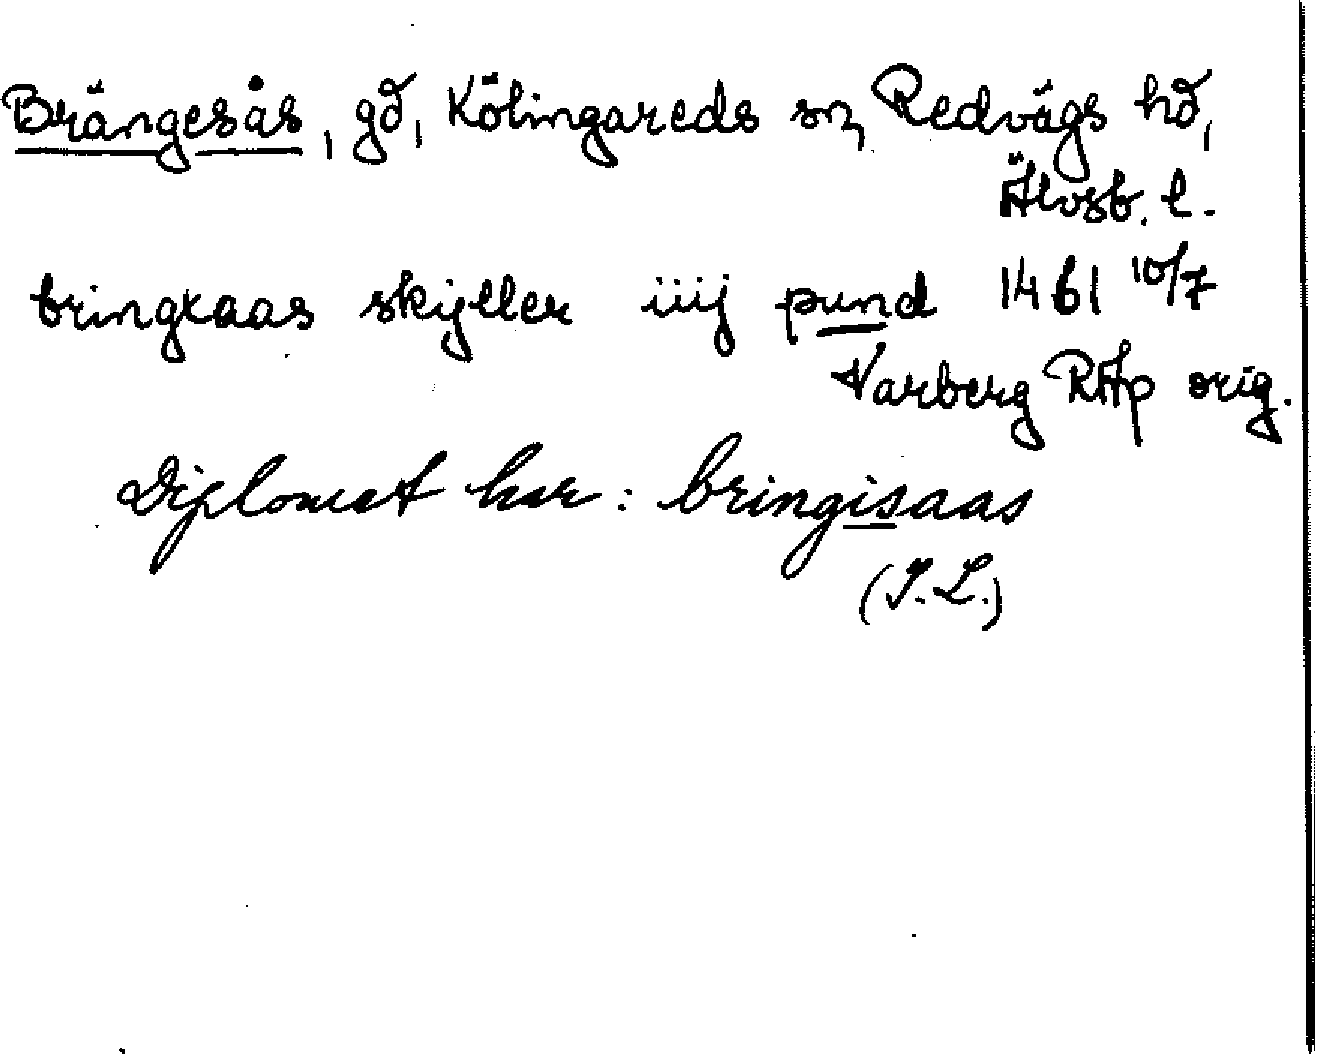 Brängesås, gd, Kölingareds sn, Redvägs hd,
Älvsb. l.
bringxaas skyller iiij pund 1461 10/7
Varberg RAp orig.
Diplomat har: bringisaas
(I.L.)